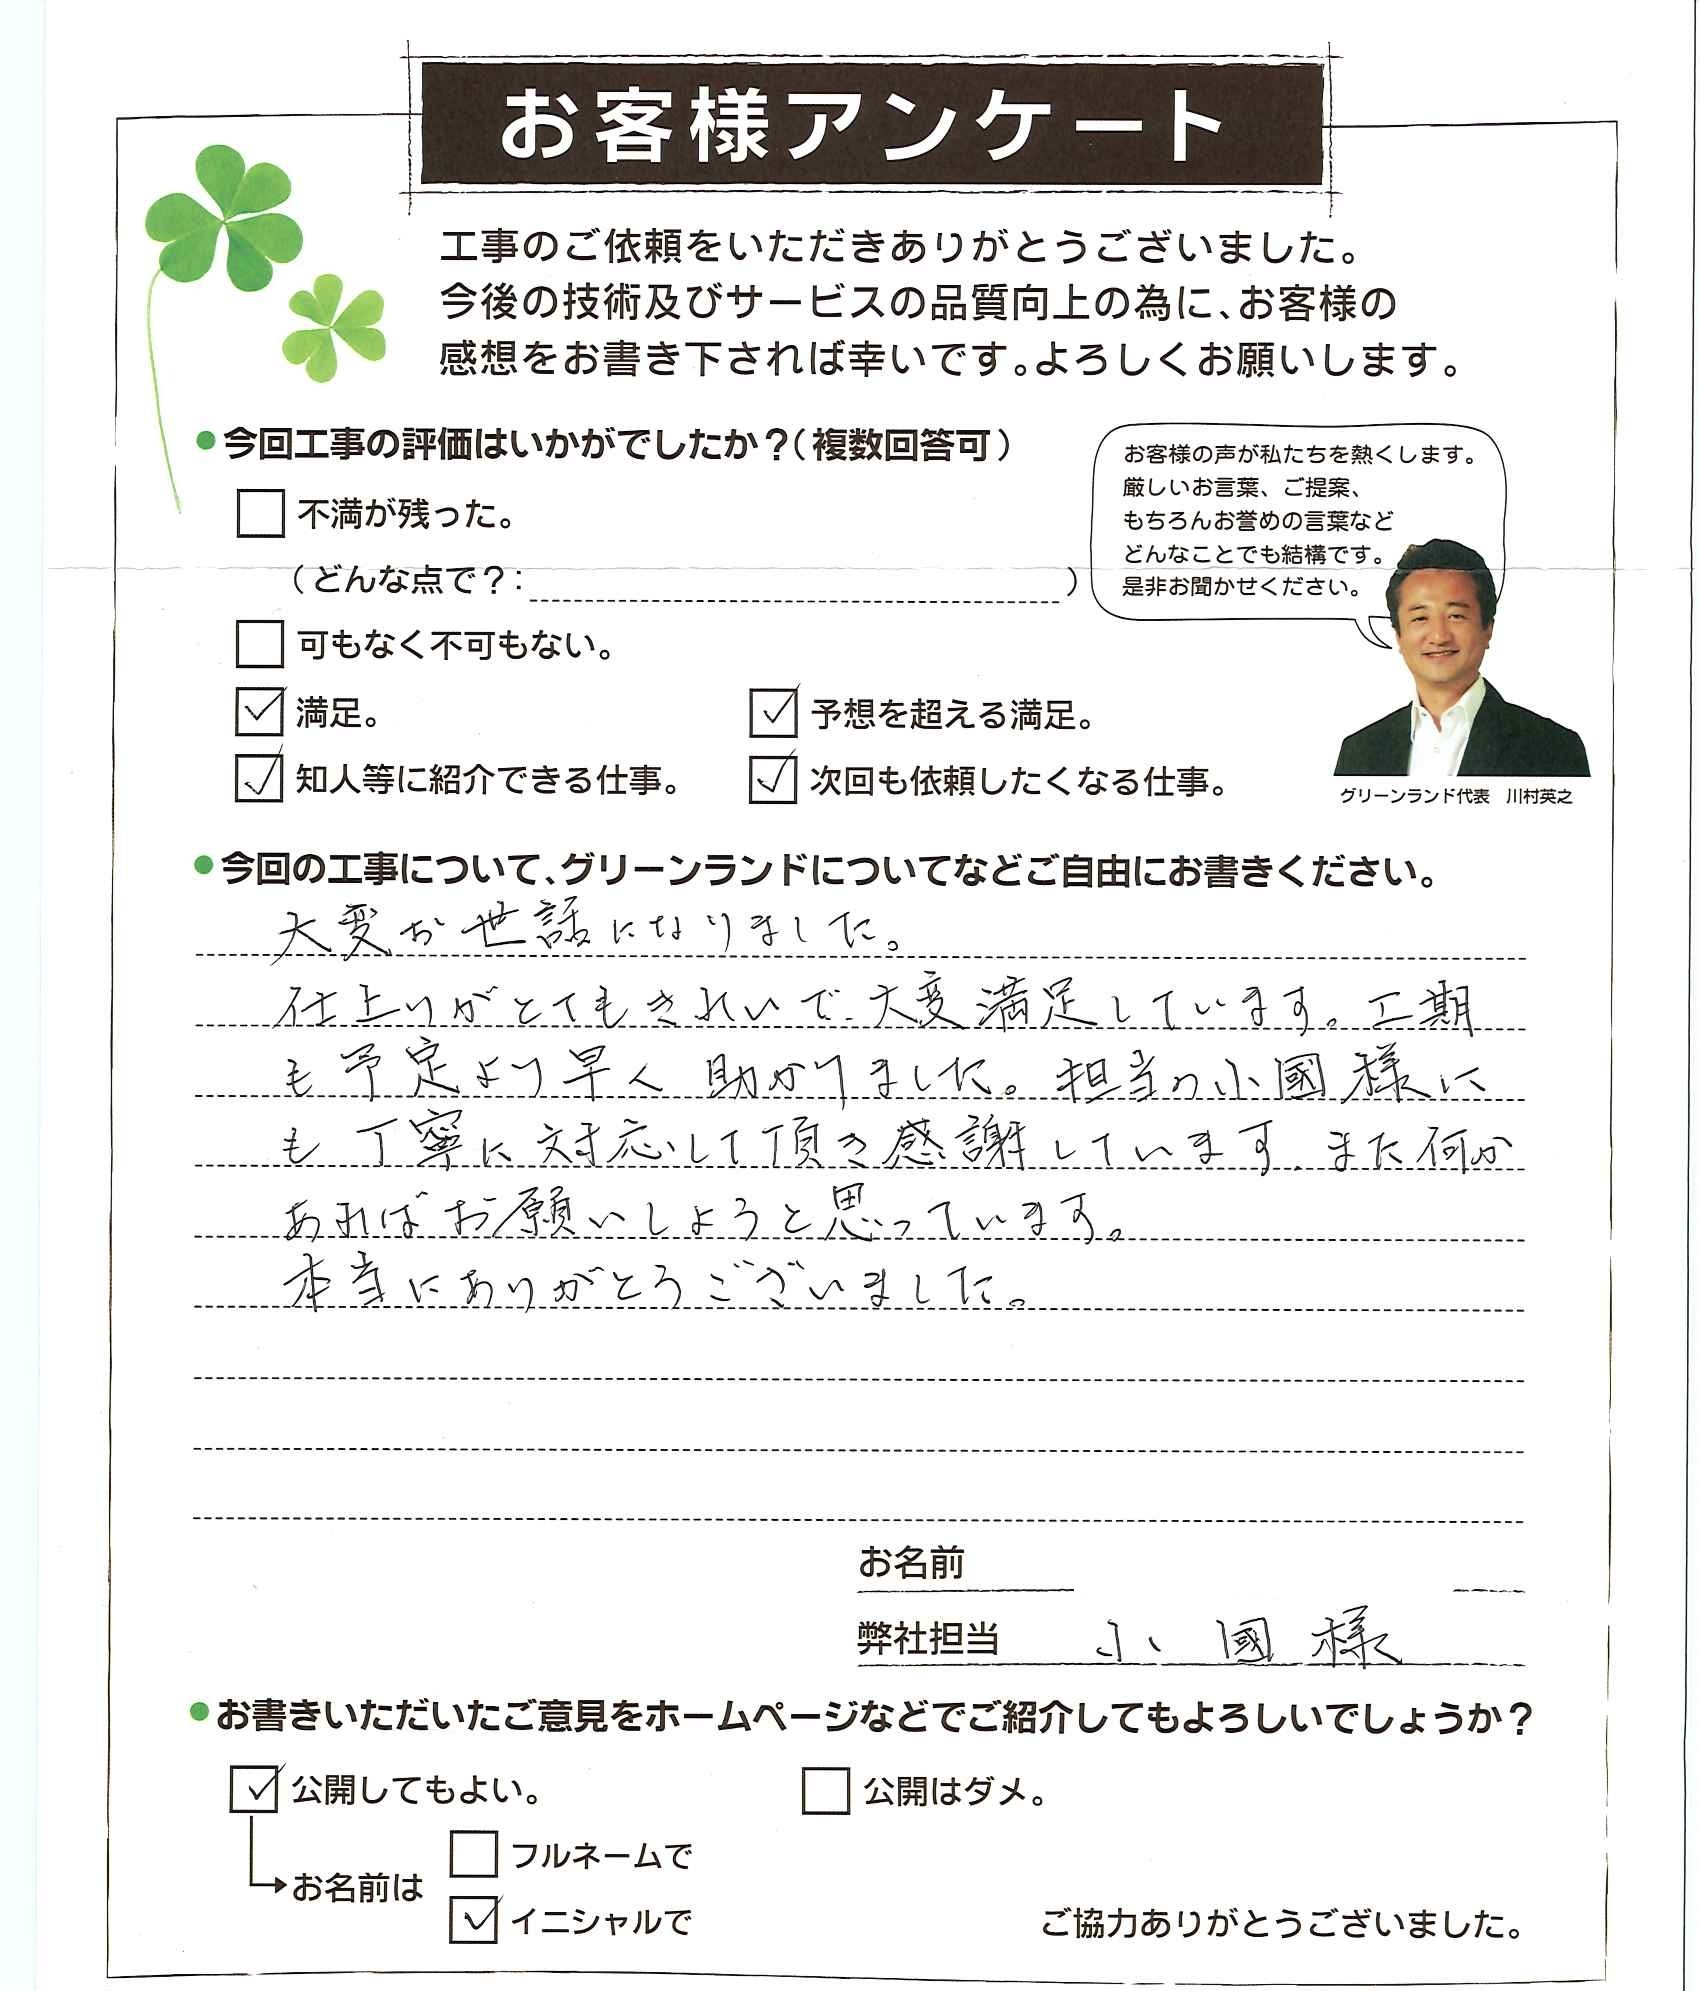 お客様アンケート
工事のご依頼をいただきありがとうございました。
今後の技術及びサービスの品質向上の為に、お客様の
感想をお書き下されば幸いです。よろしくお願いします。
●今回工事の評価はいかがでしたか?(複数回答可)
お客様の声が私たちを熱くします。
厳しいお言葉、ご提案、
もちろんお誉めの言葉など
どんなことでも結構です。
是非お聞かせください。
不満が残った。
(どんな点で?: )
可もなく不可もない。
満足。
予想を超える満足。
知人等に紹介できる仕事。
次回も依頼したくなる仕事。
グリーンランド代表 川村英之
●今回の工事について、グリーンランドについてなどご自由にお書きください。
大変お世話になりました。
仕上りがとてもきれいで、大変満足しています。工期
も予定より早く助かりました。担当の小國様に
も丁寧に対応して頂き感謝しています。また何か
あればお願いしようと思っています。
本当にありがとうございました。
お名前
弊社担当 小國様
●お書きいただいたご意見をホームページなどでご紹介してもよろしいでしょうか?
公開してもよい。
公開はダメ。
フルネームで
お名前は
イニシャルで
ご協力ありがとうございました。